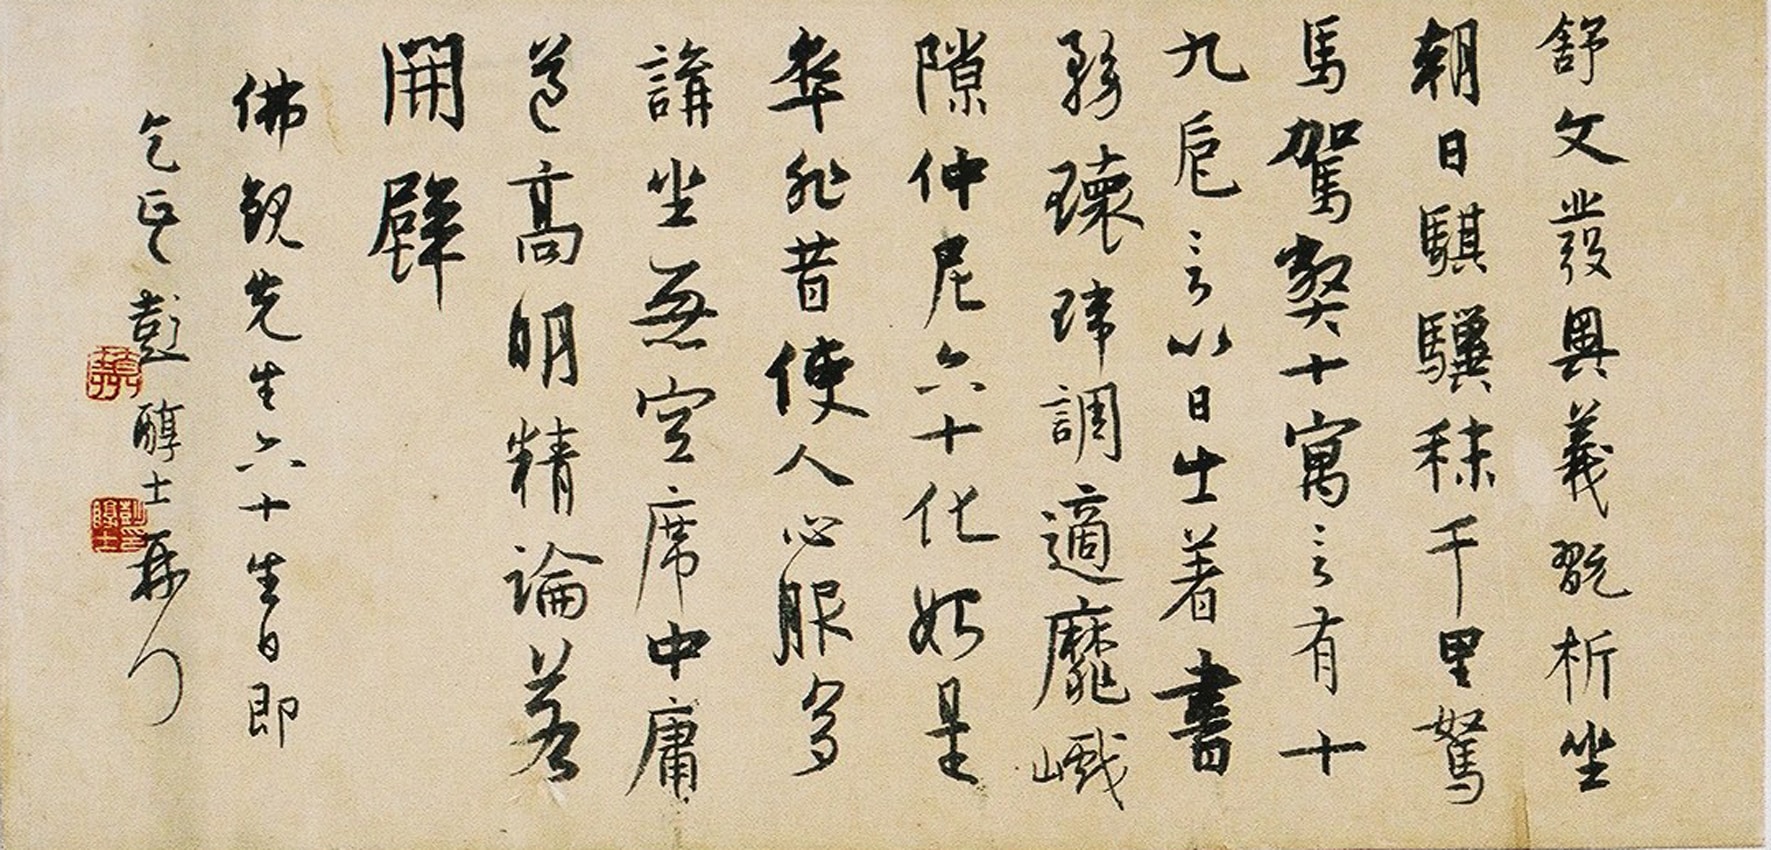 舒文發奧義翫析坐
朝日騏驥秣千里駑
馬駕契十寓言有十
九卮言以日出著書
務瓌瑋調適靡巇
隙仲尼六十化如是
舜非昔使人心服寫
講坐無空席中庸
道高明精論若
開闢
佛觀先生六十生日即
乞正彭醇士再